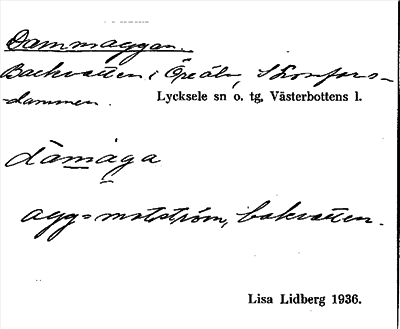 Dammaggan.
Backvatten i Öreälv, Storfors-
dammen. Lycksele sn o. tg, Västerbottens l.
dämaga
agg = motström, bakvatten.
Lisa Lidberg 1936.